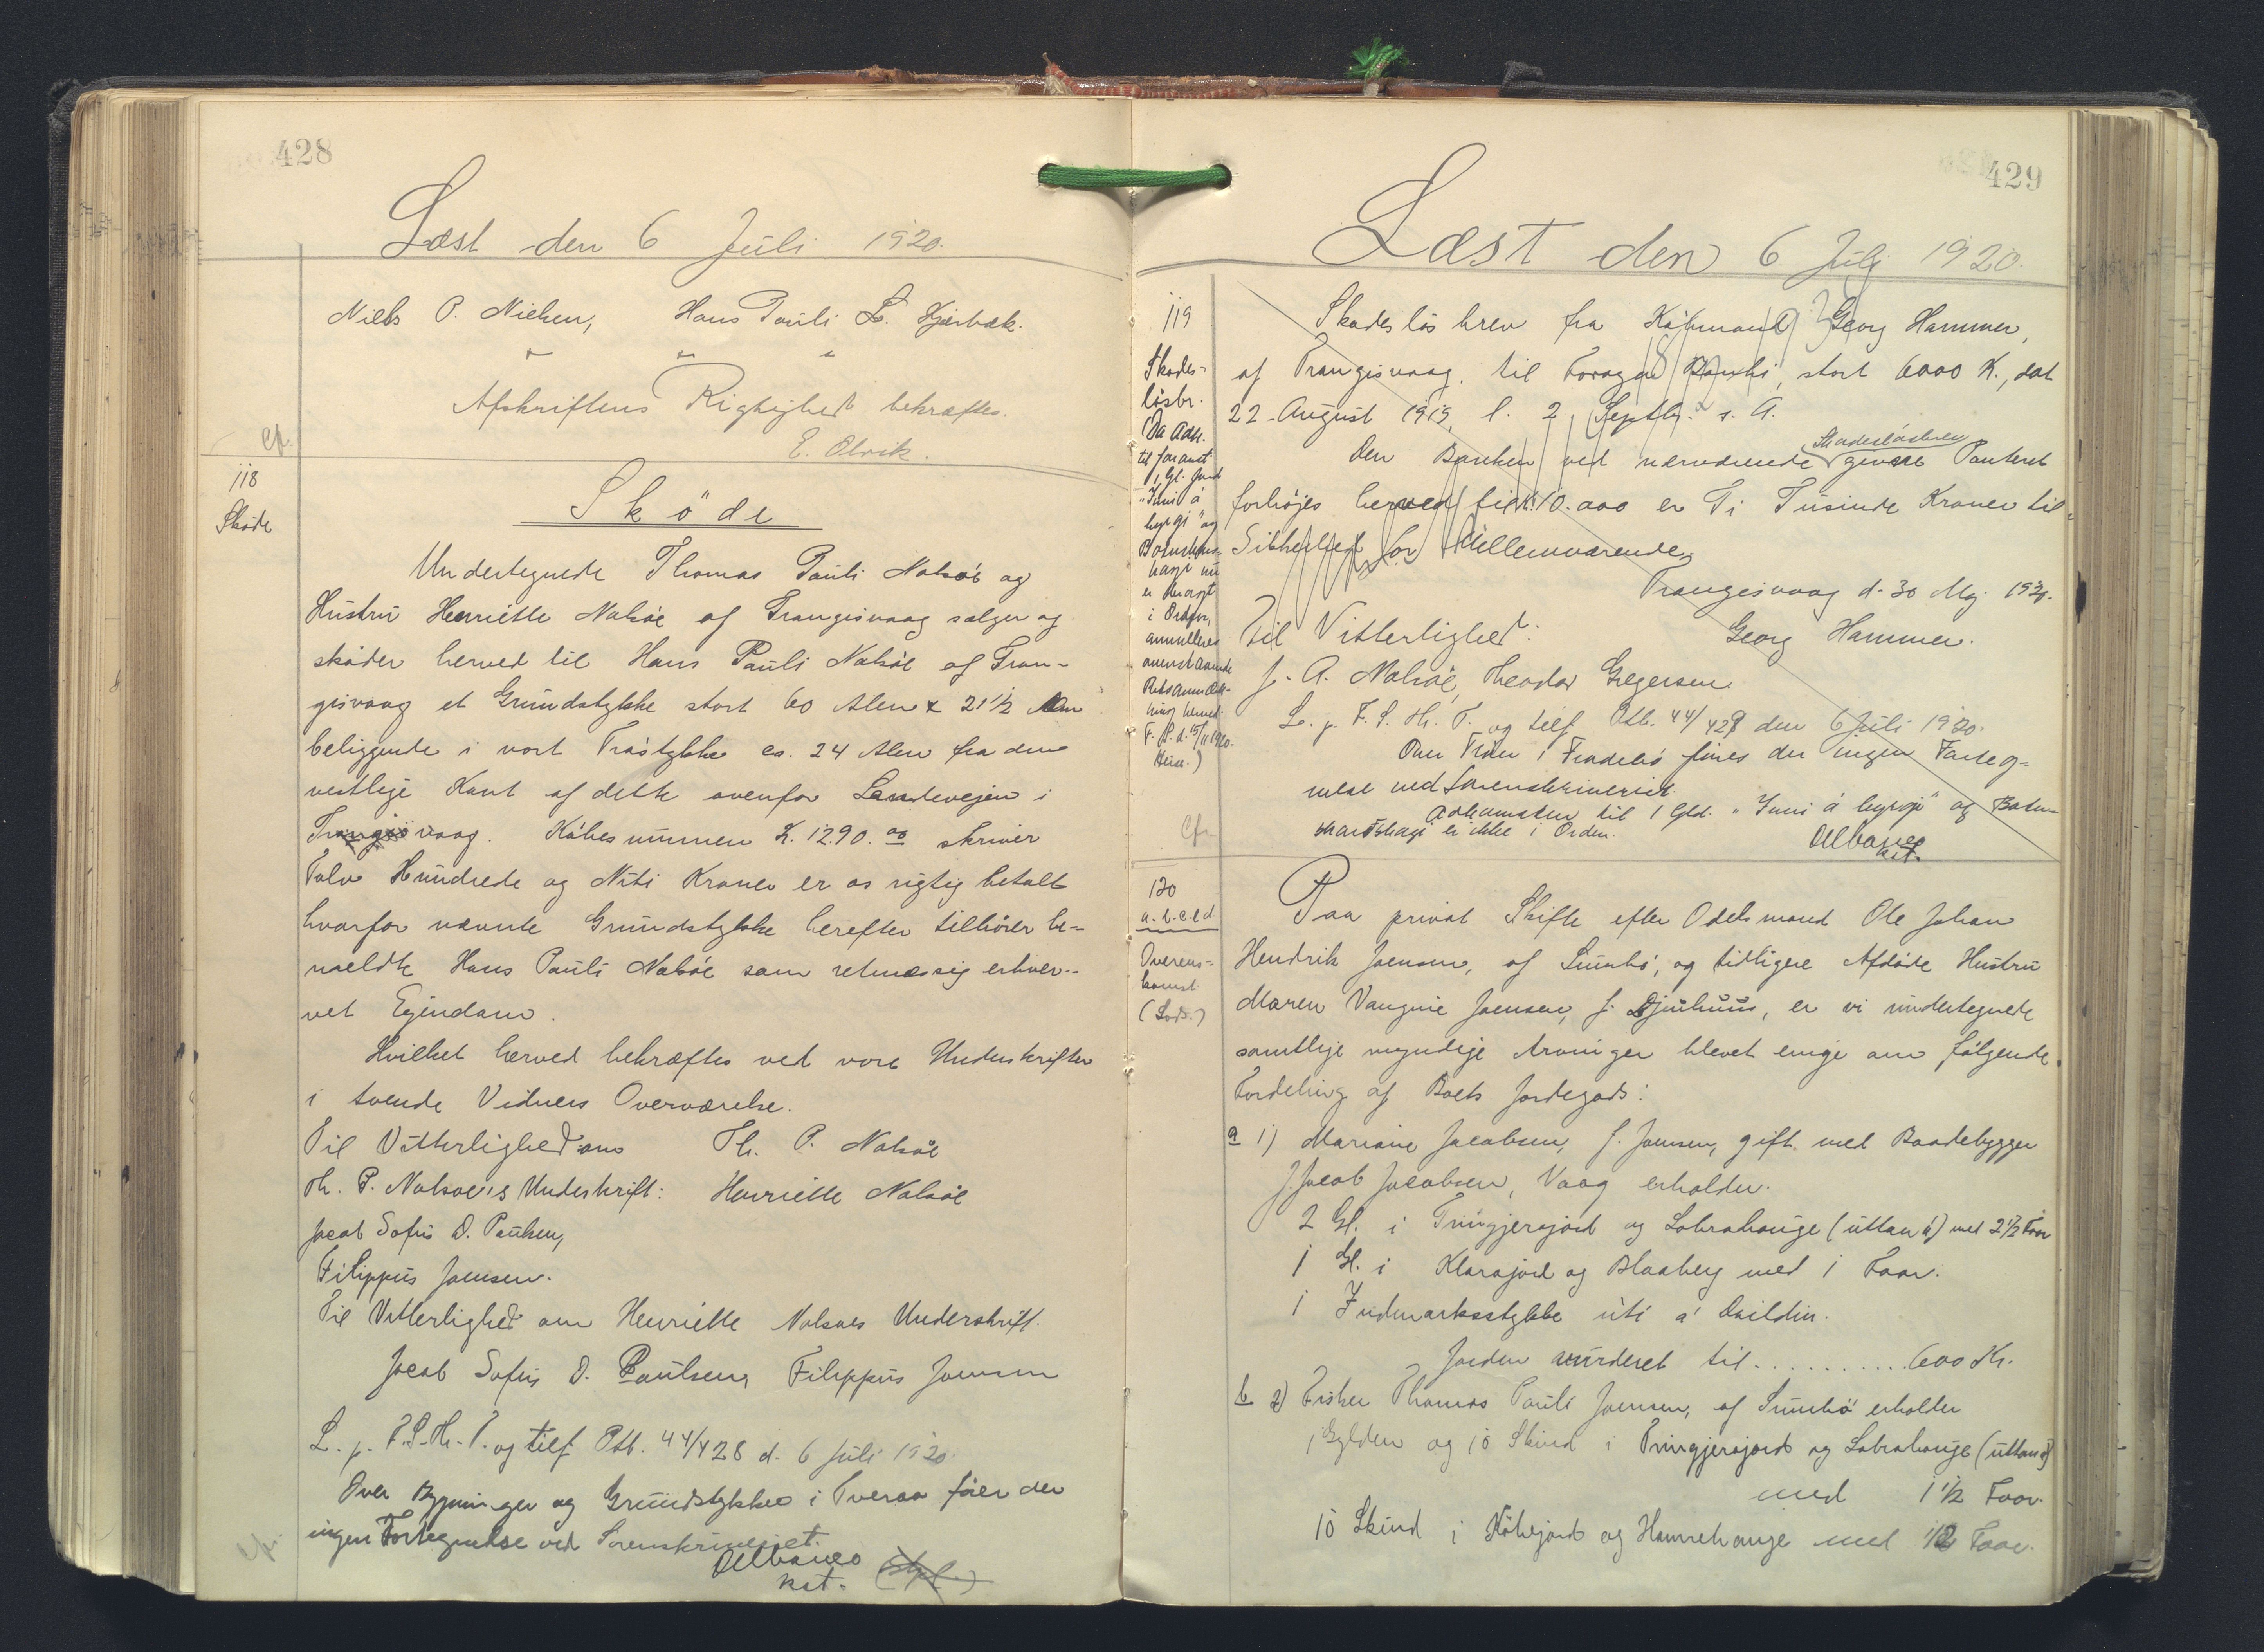 428
Læst den 6 Juli 1920.
Niels P. Nielsen, Hans Pauli L. Kjærbæk.
Afskriftens Rigtighed bekræftes.
E. Olrik.
Cf.
118
Skøde
Sköde
Undertegnede Thomas Pauli Nolsøe og
Hustru Henriette Nolsøe af Trangisvaag sælger og
skøder herved til Hans Pauli Nolsøe af Tran-
gisvaag et Grundstykke stort 60 Alen x 21 1/2 Alen
beliggende i vort Trøstykke ca. 24 Alen fra den
vestlige Kant af dette ovenfor Landevejen i
Trangisvaag. Købesummen K. 1290.00 skriver
Tolv Hundrede og Niti Kroner er os rigtig betalt
hvorfor nævnte Grundstykke herefter tilhører be-
meldte Hans Pauli Nolsøe som retmæssig erhver-
vet Ejendom.
Hvilket herved bekræftes ved vore Underskrifter
i tvende Vidners Overværelse.
Til Vitterlighed om Th. P. Nolsøe
Th. P. Nolsøe's Underskrift: Henriette Nolsøe
Jacob Sofus D. Poulsen,
Filippus Joensen.
Til Vitterlighed om Henriette Nolsøes Underskrift.
Jacob Sofus D. Poulsen, Filippus Joensen
L. p. F. S. Th. T. og tilf Ptb. 44/428 d. 6 Juli 1920.
Over Bygninger og Grundstykker i Tveraa föer der
ingen Fortegnelse ved Sorenskriveriet.
Delbanco
kst.
Cf.
429
Læst den 6 Juli 1920.
119
Skades-
løsbr.
(Da Adk.
til foranst
1 Gl. Jord
"Inni á
bygi" og
hagi nu
er bragt
i Orden,
annulleres
ovenstaaende
Retsanmærk-
ning herved
F. S. d. 15/11 1920.
Skadesløsbrev fra Købmand Georg Hammer,
af Trangisvaag, til Forøya Banki, stort 6000 K., dat
22 August 1919, l. 2 Septbr. s. A.
Den Banken ved nærværende Skadesløsbrev givne Panteret
forhøjes herved til K. 10.000 er Ti Tusinde Kroner til
Sikkerhed for Mellemværende.
Trangisvaag d. 30 Maj 1920.
Til Vitterlighed: Georg Hammer.
J. A. Nolsøe, Theodor Gregersen.
L. p. F. S. Th. T. og tilf Ptb. 44/429 den 6 Juli 1920.
Over Huse i Froðebø fines der ingen Forteg-
nelse ved Sorenskriveriet.
Adkomsten til 1 Gld. "Inni á bygi" og Botn-
hagi er ikke i Orden.
Delbanco
kst.
Cf.
120
a. b. c. & d.
Overens-
komst
(Lods.)
Paa privat Skifte efter Odelsmand Ole Johan
Hendrik Joensen, af Sumbø, og tidligere Afdøde Hustru
Maren Joensen, f. Djurhuus, er vi undertegnede
samtlige myndige Arvinger blevet enige om følgende
Fordeling af Boets Jordegods:
a 1) Mariane Jacobsen, f. Joensen, gift med Baadebygger
J. Jacob Jacobsen, Vaag erholder.
2 Gl. i Tringjerajord og Lobrahauge (uttan á) med 2 1/2 Foor
1 Gl. i Klarajord og Blaaberg med 1 Foor.
1 Indmarksstykke úti á Deildin.
Jorden vurderet til . . . . . . . . . . 600 Kr.
b 2) Fisker Thomas Pauli Joensen, af Sumbø erholder
1 Gylden og 10 Skind i Tringjerajord og Lobrahauge (uttan á)
med 1 1/2 Foor.
10 Skind i Køtejord og Hamrehauge med 1/2 Foor.